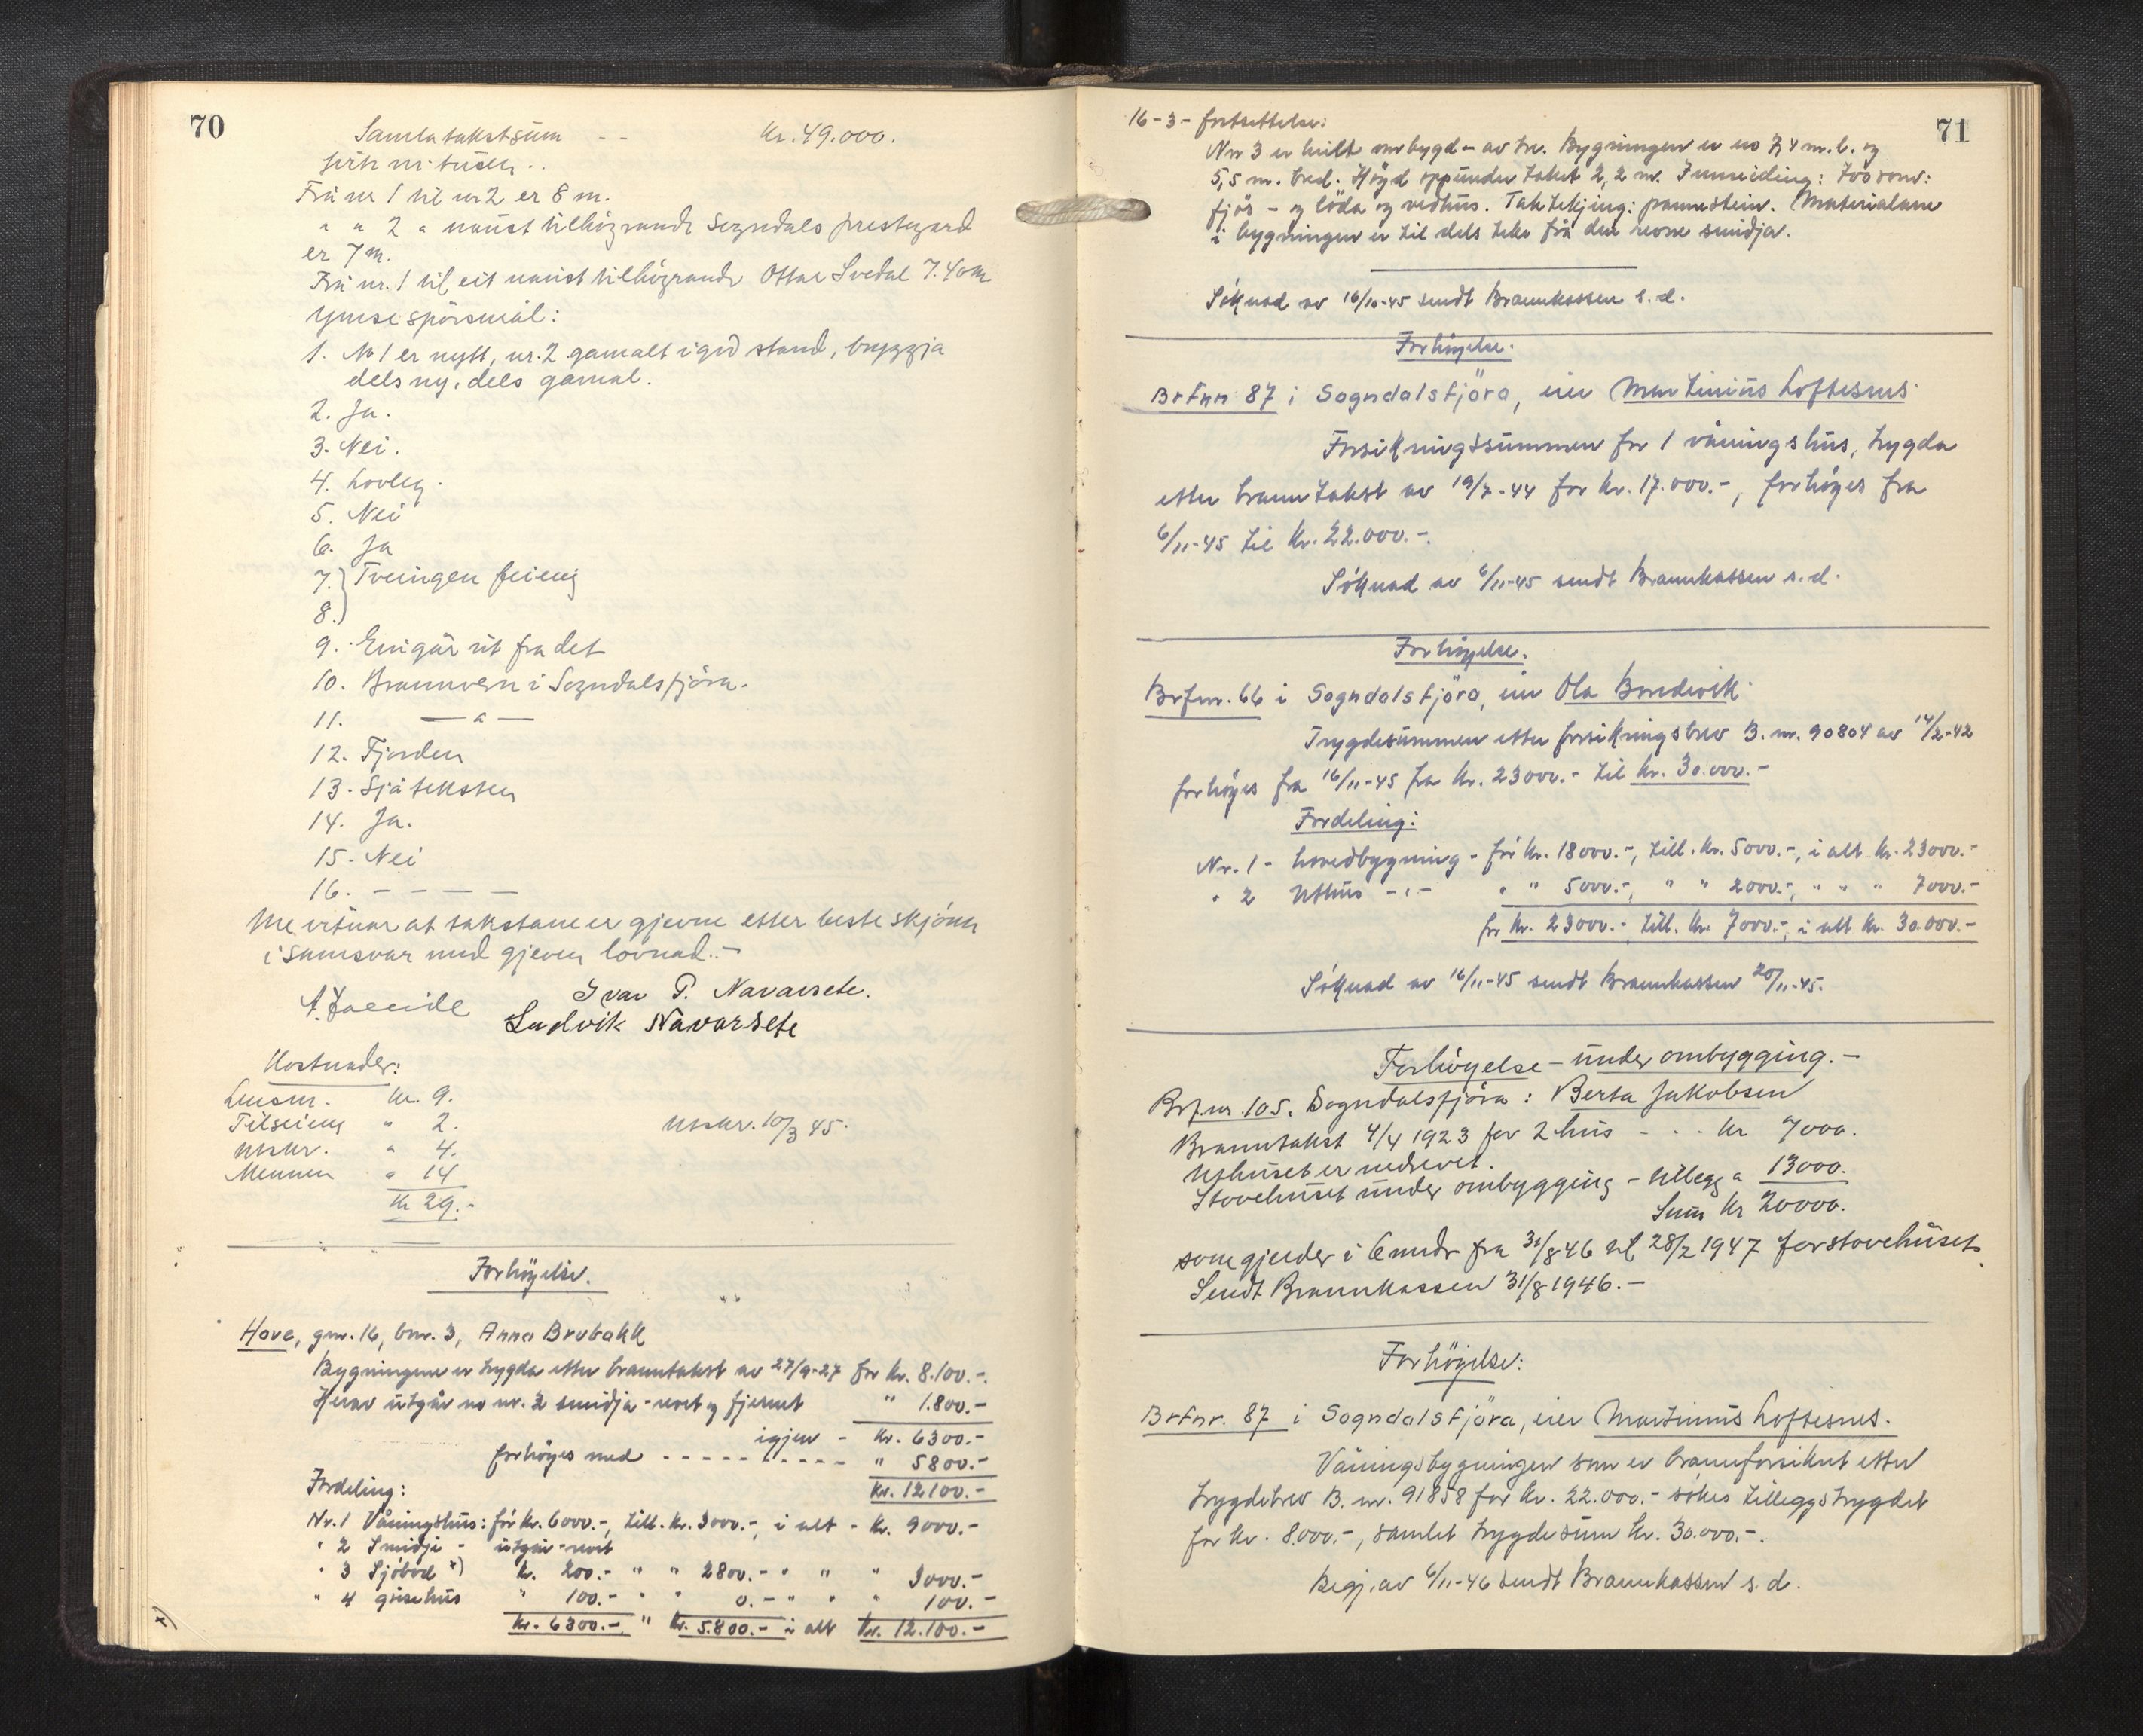 70
Samla takstsum - - kr. 49.000.
Frå nr 1 til nr 2 er 8 m.
" " 2 " naust tilhøyrande Sogndals prestegard
er 7 m.
Frå nr. 1 til eit naust tilhøyrande Ottar Svedal 7.40 m
Ymse spörsmål:
1. No 1 er nytt, nr. 2 gamalt i god stand, bryggja
dels ny, dels gamal.
2. Ja.
3. Nei.
4. Lovleg.
5. Nei
6. Ja
7.} Tvungen feiing
8.}
9. Ein går ut fra det
10. Brannvern i Sogndalsfjöra.
11. — " —
12. Fjorden
13. Sjåteksten
14. Ja.
15. Nei
16. - - - -
Me vitnar at takstane er gjevne etter beste skjönn
i samsvar med gjeven lovnad. -
Ivar P. Navarsete.
Ludvik Navarsete
Kostnader:
Lensm. kr. 9.
Tilseiing " 2.
Utskr. " 4.
Mennen " 14
Kr 29.-
Utskr. 10/3 45.
Forhöyelse.
Hove, gnr. 16, bnr. 3, Anna Brubakk
Bygningene er trygda etter branntakst av 27/9-27 for kr. 8.100.-.
Herav utgår no nr. 2 smidja - revet og fjernet " 1.800.-
igjen - kr. 6300.-
forhöyes med - - - - - - - - " 5800.-
kr. 12100.-
Fordeling:
Nr. 1 Våningshus: för kr. 6000.-, till. kr. 3000.-, i alt - kr. 9000.-
" 2 Smidje - utgår - revet
" 3 Sjöbod x) kr. 200.- " " 2800.- " " " 3000.-
" 4 grisehus " 100.- " " 0.- " " " 100.-
kr. 6300.- " kr. 5.800.- i alt kr. 12.100.-
x)
71
16-3- fortsettelse:
Nr 3 er heilt ombygd - av tre. Bygningen er no 7,4 m. l. og
5,5 m. bred. Höyd oppunder taket 2,2 m. Innreiing: 
fjös - og löda og vedhus. Taktekjing: pannestein. Materialane
i bygningen er til dels teke frå den revne smidja.
Söknad av 16/10-45 sendt Brannkassen s. d.
Forhöyelse.
Brfnr 87 i Sogndalsfjöra, eier Martinius Loftesnes.
Forsikringssummen for 1 våningshus, trygda
etter branntakst av 19/7-44 for kr. 17.000.-, forhöyes fra
6/11-45 til kr. 22.000.-.
Söknad av 6/11-45 sendt Brannkassen s. d.
Forhöyelse.
Brfnr. 66 i Sogndalsfjöra, eier Ola Bondevik.
Trygdesummen etter forsikringsbrev B. nr. 90804 av 14/2-42
forhöyes fra 16/11-45 fra kr. 23000.- til kr. 30.000.-
Fordeling:
Nr. 1 - hovedbygning - för kr. 18000.-, till. kr. 5000.-, i alt kr. 23000.-
" 2 Uthus - " - " " 5000.-, " " 2000.-, " " " 7000.-
för kr. 23000.- till. kr. 7000.-, i alt kr. 30.000.-
Söknad av 16/11-45 sendt Brannkassen 20/11-45.
Forhöyelse - under ombygging. -
Brf.nr. 105. Sogndalsfjöra: Berta Jakobsen
Branntakst 4/4 1923 for 2 hus - - - kr 7000.
Uthuset er nedrevet.
Stovehuset under ombygging - tillegg " 13000.
Sum kr 20000.
som gjelder i 6 mndr fra 31/8 46 til 28/2 1947 for stovehuset.
Sendt Brannkassen 31/8 1946. -
Forhöyelse:
Brfnr. 87 i Sogndalsfjöra, eier Martinius Loftesnes.
Våningsbygningen som er brannforsikret etter
trygdebrev B. nr. 91858 for kr. 22.000.- sökes tilleggstrygdet
for kr. 8.000.-, samlet trygdesum kr. 30.000.-.
Begj. av 6/11-46 sendt Brannkassen s. d.